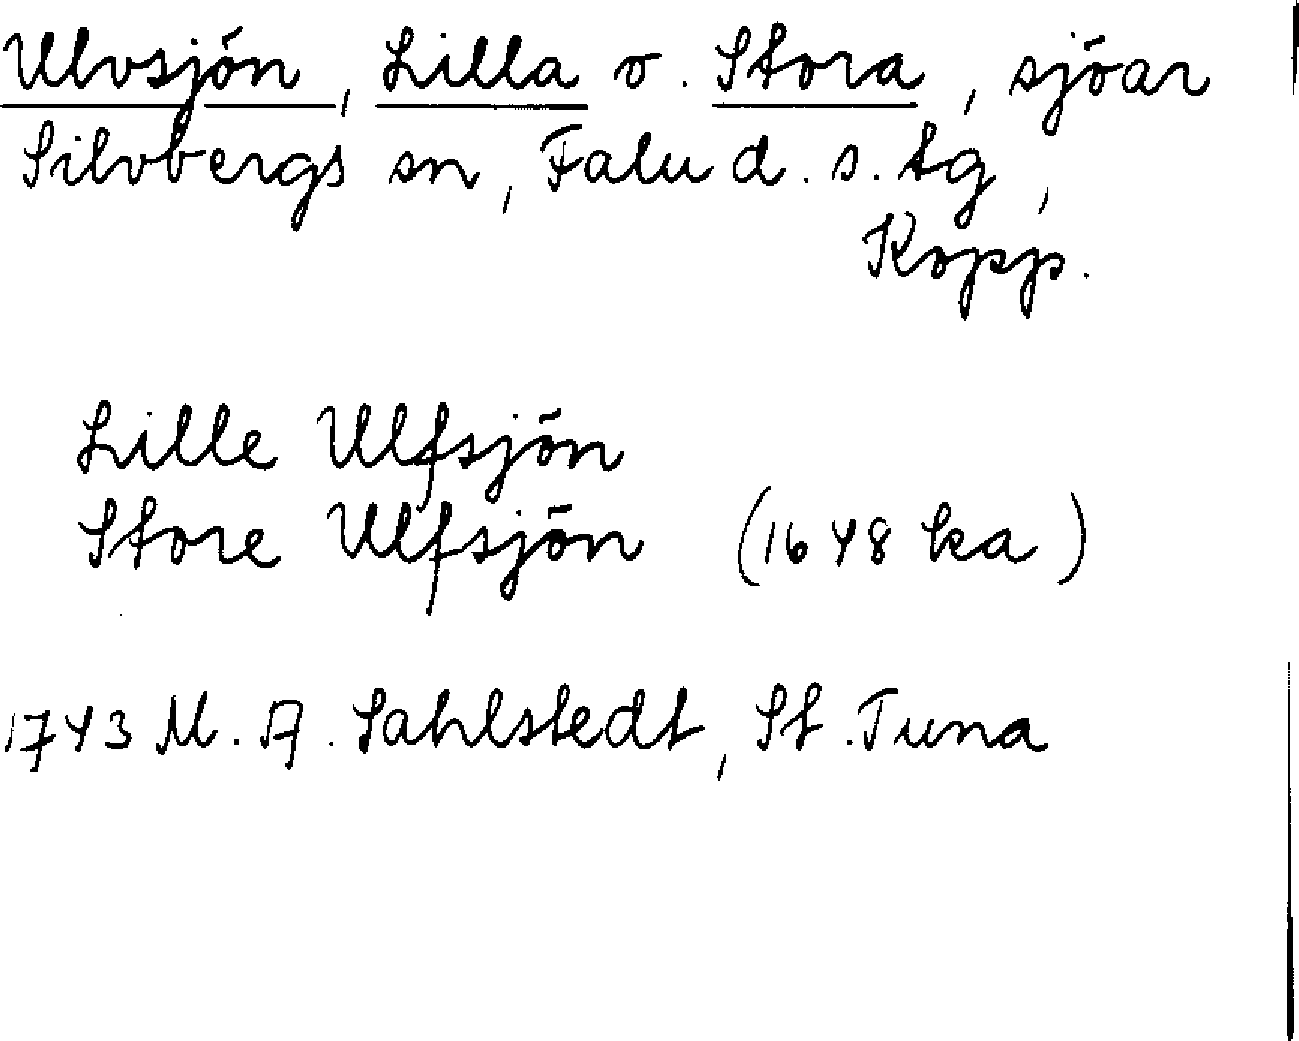 Ulvsjön, Lilla o. Stora, sjöar
Silvbergs sn, Falu d. s. tg,
Kopp.
Lille Ulfsjön
Store Ulfsjön (1648 ka)
1743 M. A. Sahlstedt, St. Tuna